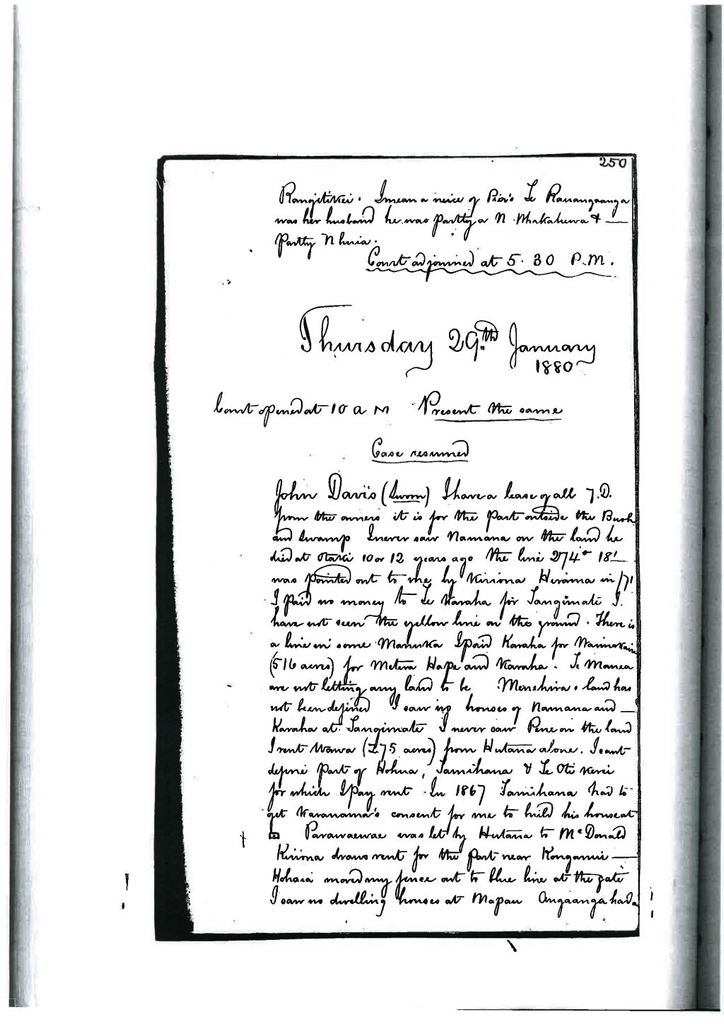 250
Rangitikei. I mean a neice of Piri's Te Rauangaanga
was her husband he was partly a N. Whakatere &
partly N huia.
Court adjourned at 5.30 P.M.
Thursday 29th January
1880
Court opened at 10 a M Present the same
Case resumed
John Davis (Sworn) I have a lease of all 7.D.
from the owners it is for the part outside the Bush
and Swamp I never saw Namana on the land he
died at Otaki 10 or 12 years ago The line 274° 18'
was pointed out to me by Kiriona Hirama in /71
I paid no money to Te Karaha for Tangimate I
have not seen the yellow line on the ground. There is
a line in some Manuka I paid Karaha for
(516 acres) for Metera Hape and Karaha.
are not letting any land to be land has
not been defined I saw houses of Namana and
Karaha at Tangimate I never saw Pene on the land
I rent Wawa (275 acres) from Hutana alone. I cant
define part of Hohua, Tamihana & Te Oti Kerei
for which I pay rent. In 1867 Tamihana had to
get Karanama's consent for me to build his house at
Parawaewae was let by Hutana to McDonald
Kiriona draws rent for the part near
Hohaia moved my fence out to blue line at the gate
I saw no dwelling houses at Mapau Angaanga had a